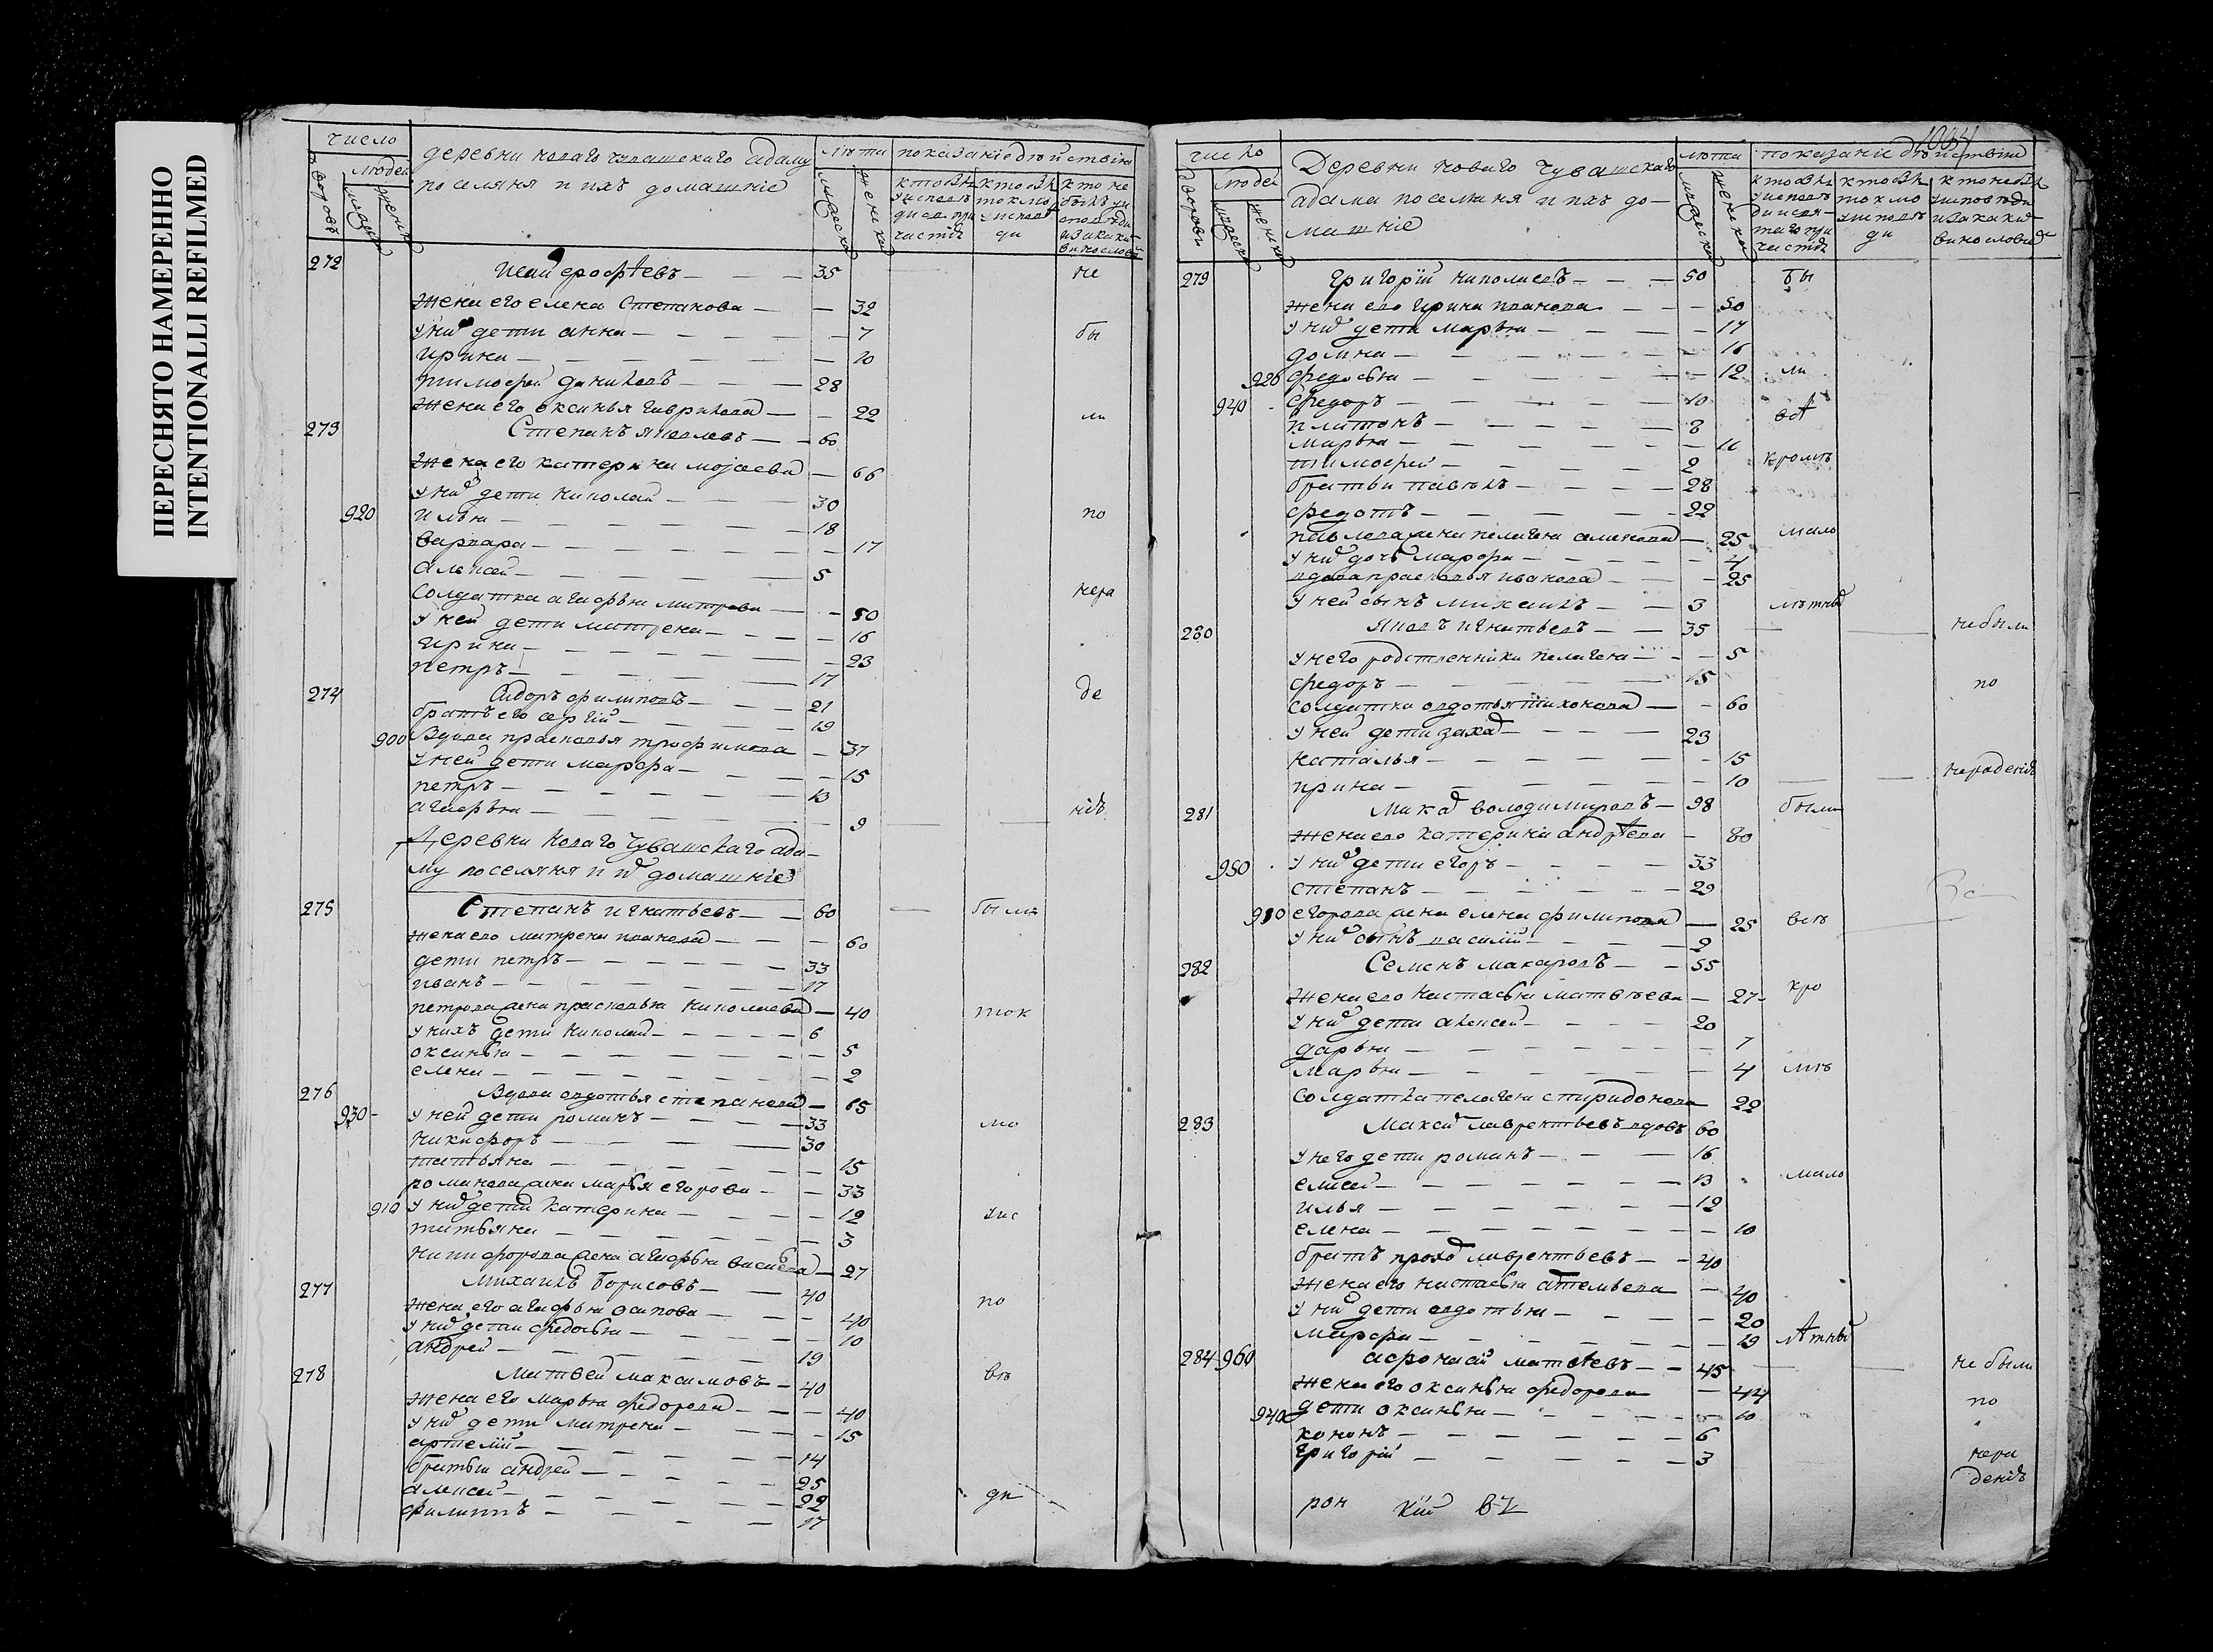 ПЕРЕСНЯТО НАМЕРЕННО
INTENTIONALLI REFILMED
число
людей
дворовъ
мужеска
женска
деревни новаго чувашскаго адаму
поселяня и ихъ домашніе
лѣта
мужеска
женска
показаніе дѣйствія
272 Исай ерофѣевъ 35 не
жена его елена Степанова 32
у них дети анна 7 бы
ирина 10
тимофей даниловъ 28
жена его оксинья гаврилова 22 ли
273 Степанъ яковлевъ 60
жена его катерина 66
у них дети николай 30
920 илья 18 по
варвара 17
алексей 5
солдатка агафья митрова 50 нера
у ней дети матрена 16
ирина 23
петръ 17
274 Сидоръ филиповъ 21 де
братъ его сергий 19
900 Вдова прасковья трофимова 37
у ней дети марфа 15
петръ 13
агафья 9 ніѣ
Деревни новаго чувашскаго ада-
му поселяня и их домашніе
275 Степанъ игнатьевъ 60 были
жена ево матрена иванова 60
дети петръ 33
иванъ 17
петрова жена прасковья николаева 40 ток
у нихъ дети николай 6
оксинья 5
елена 2
276 Вдова авдотья степанова 65
930 у ней дети романъ 33 мо
никифоръ 30
татьяна 15
романова жена марья егорова 33
910 у них дети катерина 12 уис
татьяна 3
никифорова жена агафья 27
277 михаилъ борисовъ 40
жена его агафья осипова 40 по
у них дети федосья 10
андрей 19
278 Матвей максимовъ 40 вѣ
жена его марья федорова 40
у них дети матрена 15
артемій 14
братья андрей 25
алексей 22 ди
филиппъ 17
1034
число
людей
дворовъ
мужеска
женска
Деревни новаго чувашскаго
адама поселяня и ихъ до-
машніе
лѣта
мужеска
женска
показаніе дѣйствія
279 григорій николаевъ 50 бы
жена ево ирина иванова 50
у них дети марья 17
домна 16
920 федосья 12 ли
940 федоръ 10
платонъ 8 всѣ
марья 11
тимофей 2 кромѣ
братья павелъ 28
федотъ 22
павлова жена пелагея семенова 25 мало
у них дочь марфа 4
вдова прасковья иванова 25
у ней сынъ михаилъ 3 лѣтных
280 яковъ игнатьевъ 35 не были
у него родственники пелагея 5
федоръ 15 по
солдатка авдотья тихонова 60
у ней дети захар 23
наталья 15
ирина 10 нерадению
281 володимировъ 98 были
жена ево катерина андрѣева 80
950 у них дети егоръ 33
степанъ 29
930 егорова жена елена филипова 25 всѣ
у них сынъ василий 2
282 Семенъ макаровъ 55
жена ево настасья матвѣева 27 кро
у них дети алексей 20
дарья 7
марья 4 мѣ
солдатка пелагея спиридонова 22
283 Максим лаврентьевъ вдовъ 60
у него дети романъ 16
елисей 13 мало
илья 12
елена 10
братъ прохор лаврентьевъ 40
жена его настасья 40
у них дети авдотья 20
марфа 19 лѣтных
284 960 афонасий матвѣевъ 45 не были
жена его оксинья федорова 44
940 дети оксинья 10 по
кононъ 6
григорій 3 нера
дению